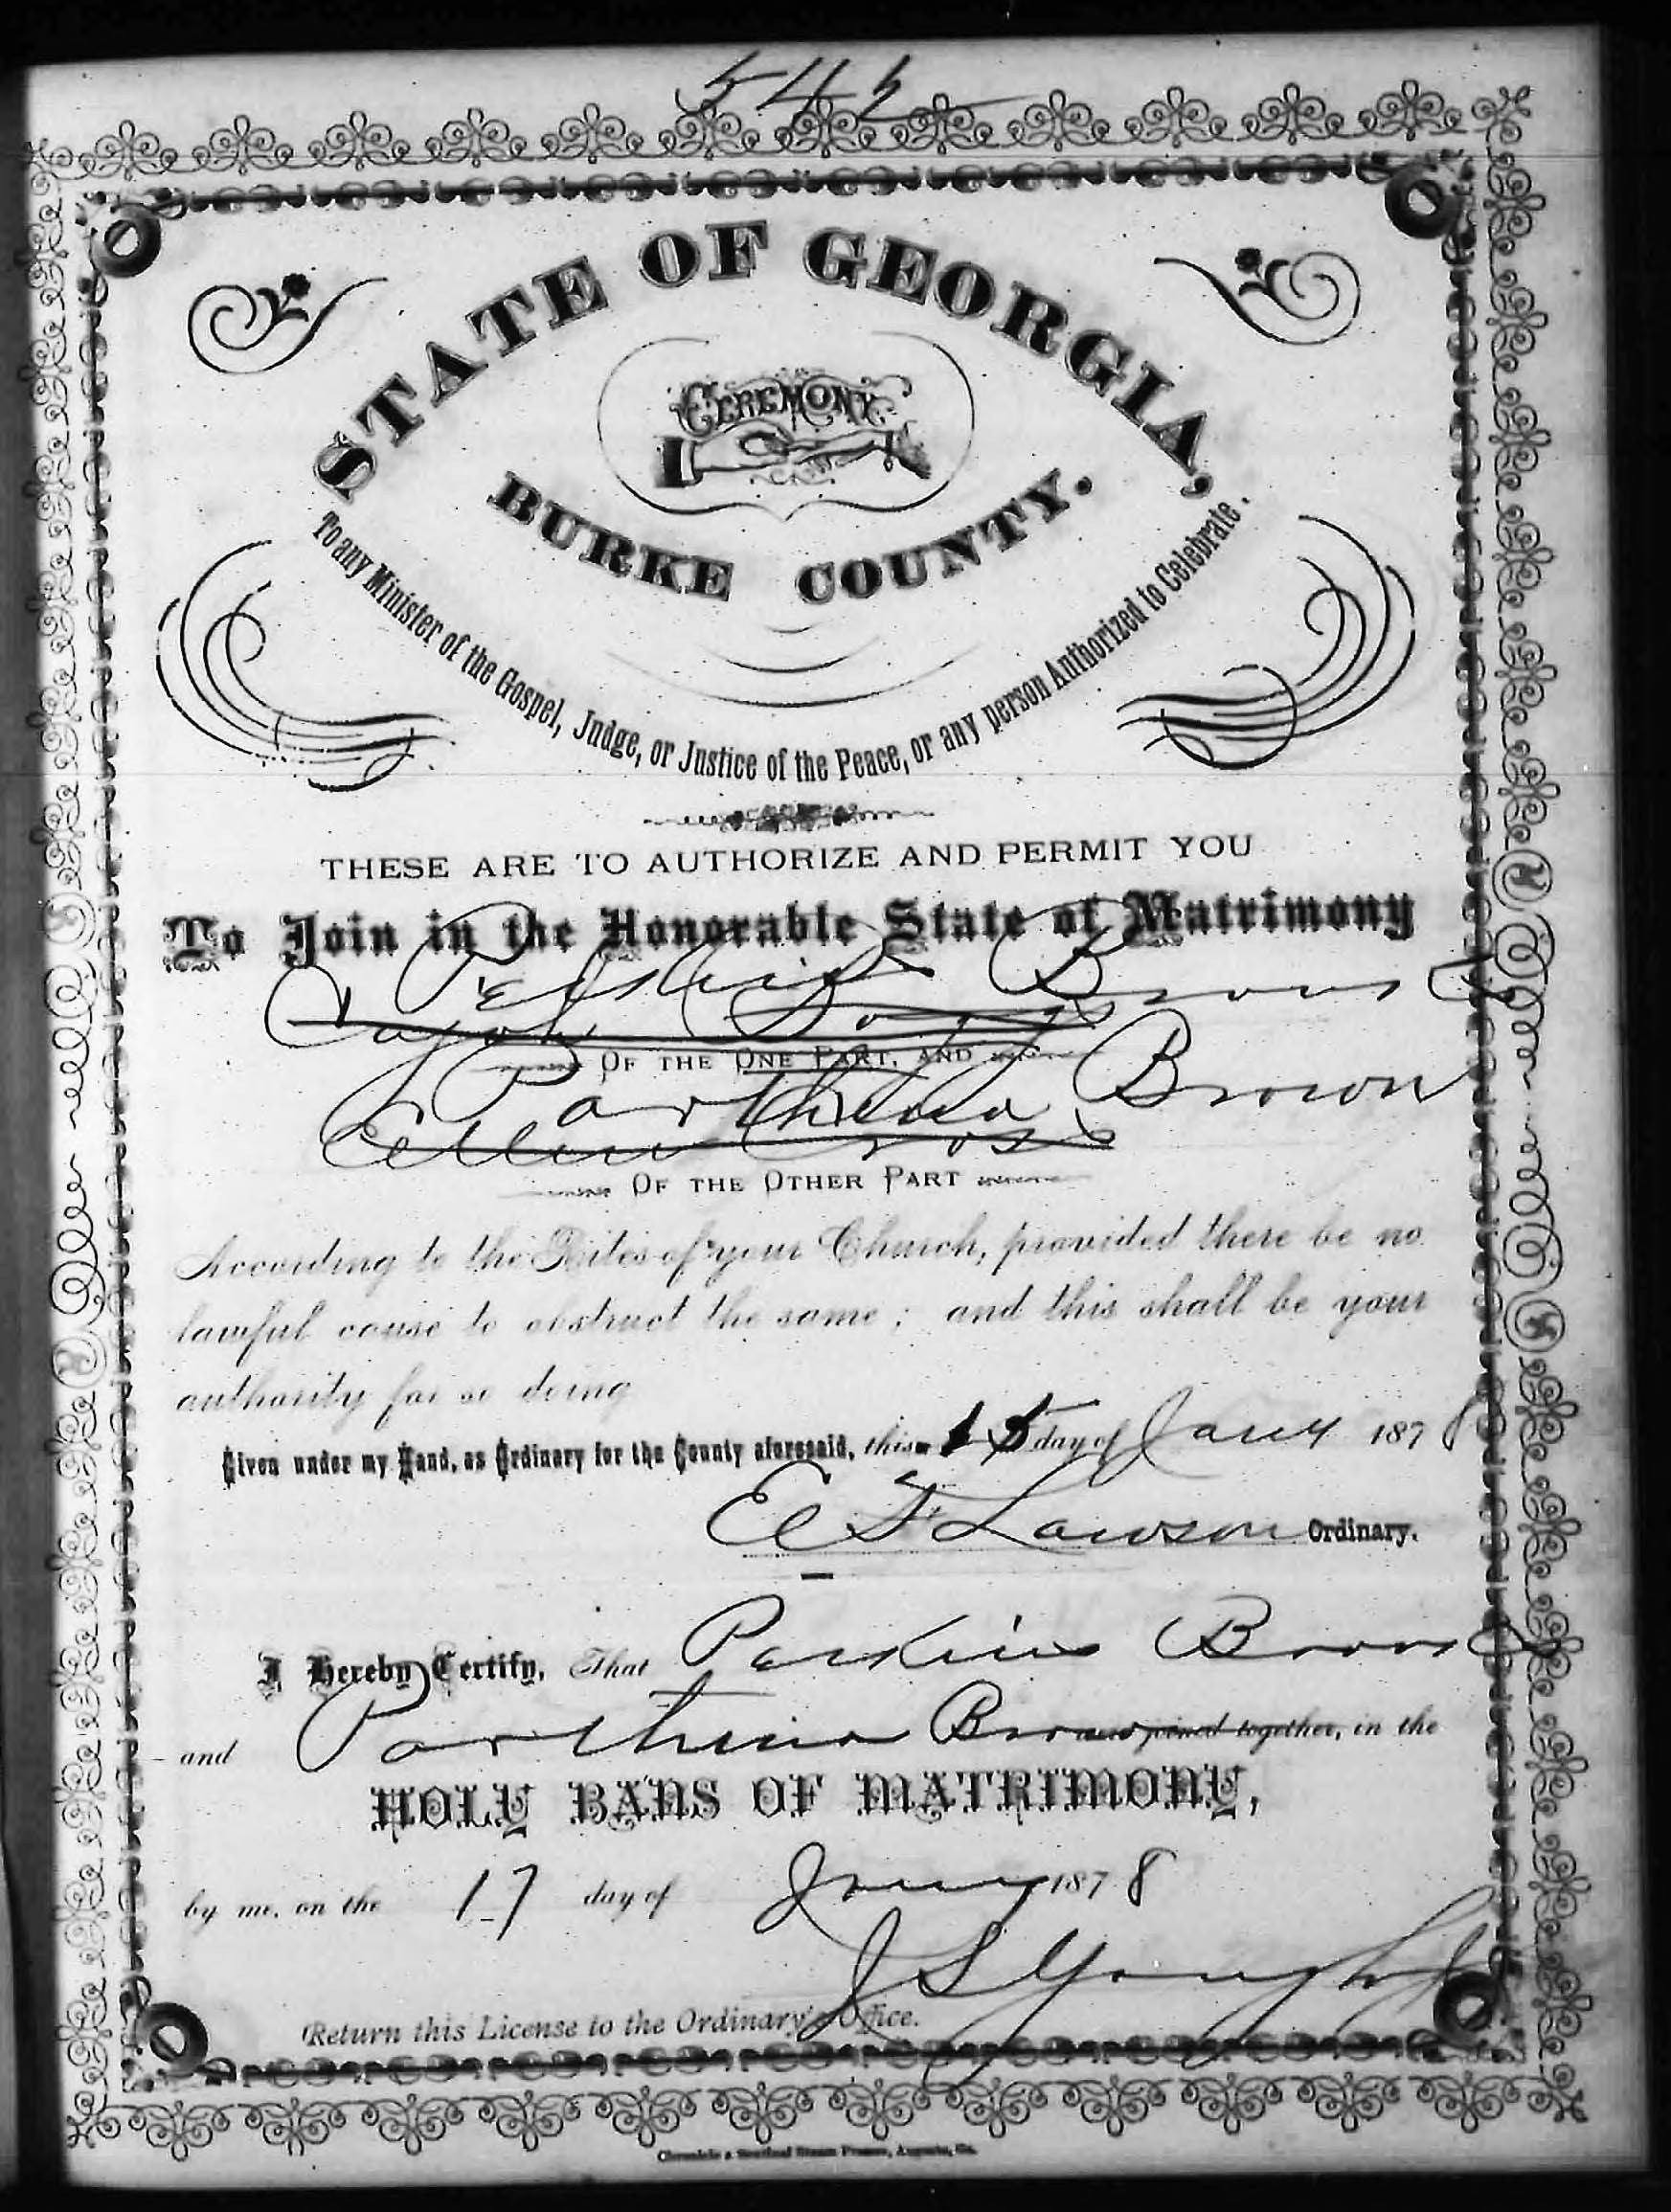 542
STATE OF GEORGIA,
CEREMONY
BURKE COUNTY.
To any Minister of the Gospel, Judge, or Justice of the Peace, or any person Authorized to Celebrate.
THESE ARE TO AUTHORIZE AND PERMIT YOU
To Join in the Honorable State of Matrimony
Perkins Brown
OF THE ONE PART, AND
Parthena Brown
Cross
OF THE OTHER PART
According to the Rites of your Church, provided there be no
lawful cause to obstruct the same; and this shall be your
authority for so doing
Given under my Hand, as Ordinary for the County aforesaid, this 15 day of Jany 1878
E F Lawson Ordinary.
I Hereby Certify, That Perkins Brown
and Parthena Brown were joined together, in the
HOLY BANS OF MATRIMONY,
by me, on the 17 day of Jany 1878
J S
Return this License to the Ordinary's Office.
Chronicle & Sentinel Steam Presses, Augusta, Ga.